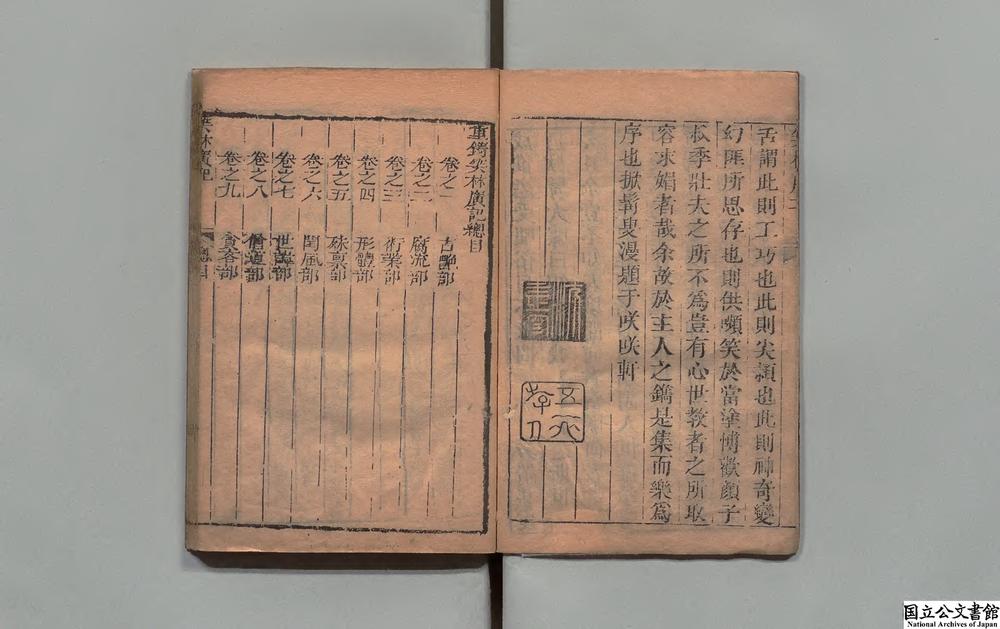 舌謂此則工巧也此則尖穎也此則神奇變
幻匪所思存也則供嚬笑於當塗博歡顏子
叔季壯夫之所不為豈有心世教者之所取
容求媚者哉余故於主人之鐫是集而樂為
序也掀髯叟漫題于咲咲軒
重鐫笑林廣記總目
卷之一 古艷部
卷之二 腐流部
卷之三 術業部
卷之四 形體部
卷之五 殊稟部
卷之六 閨風部
卷之七 世諱部
卷之八 僧道部
卷之九 貪吝部
笑林廣記 總目
国立公文書館
National Archives of Japan